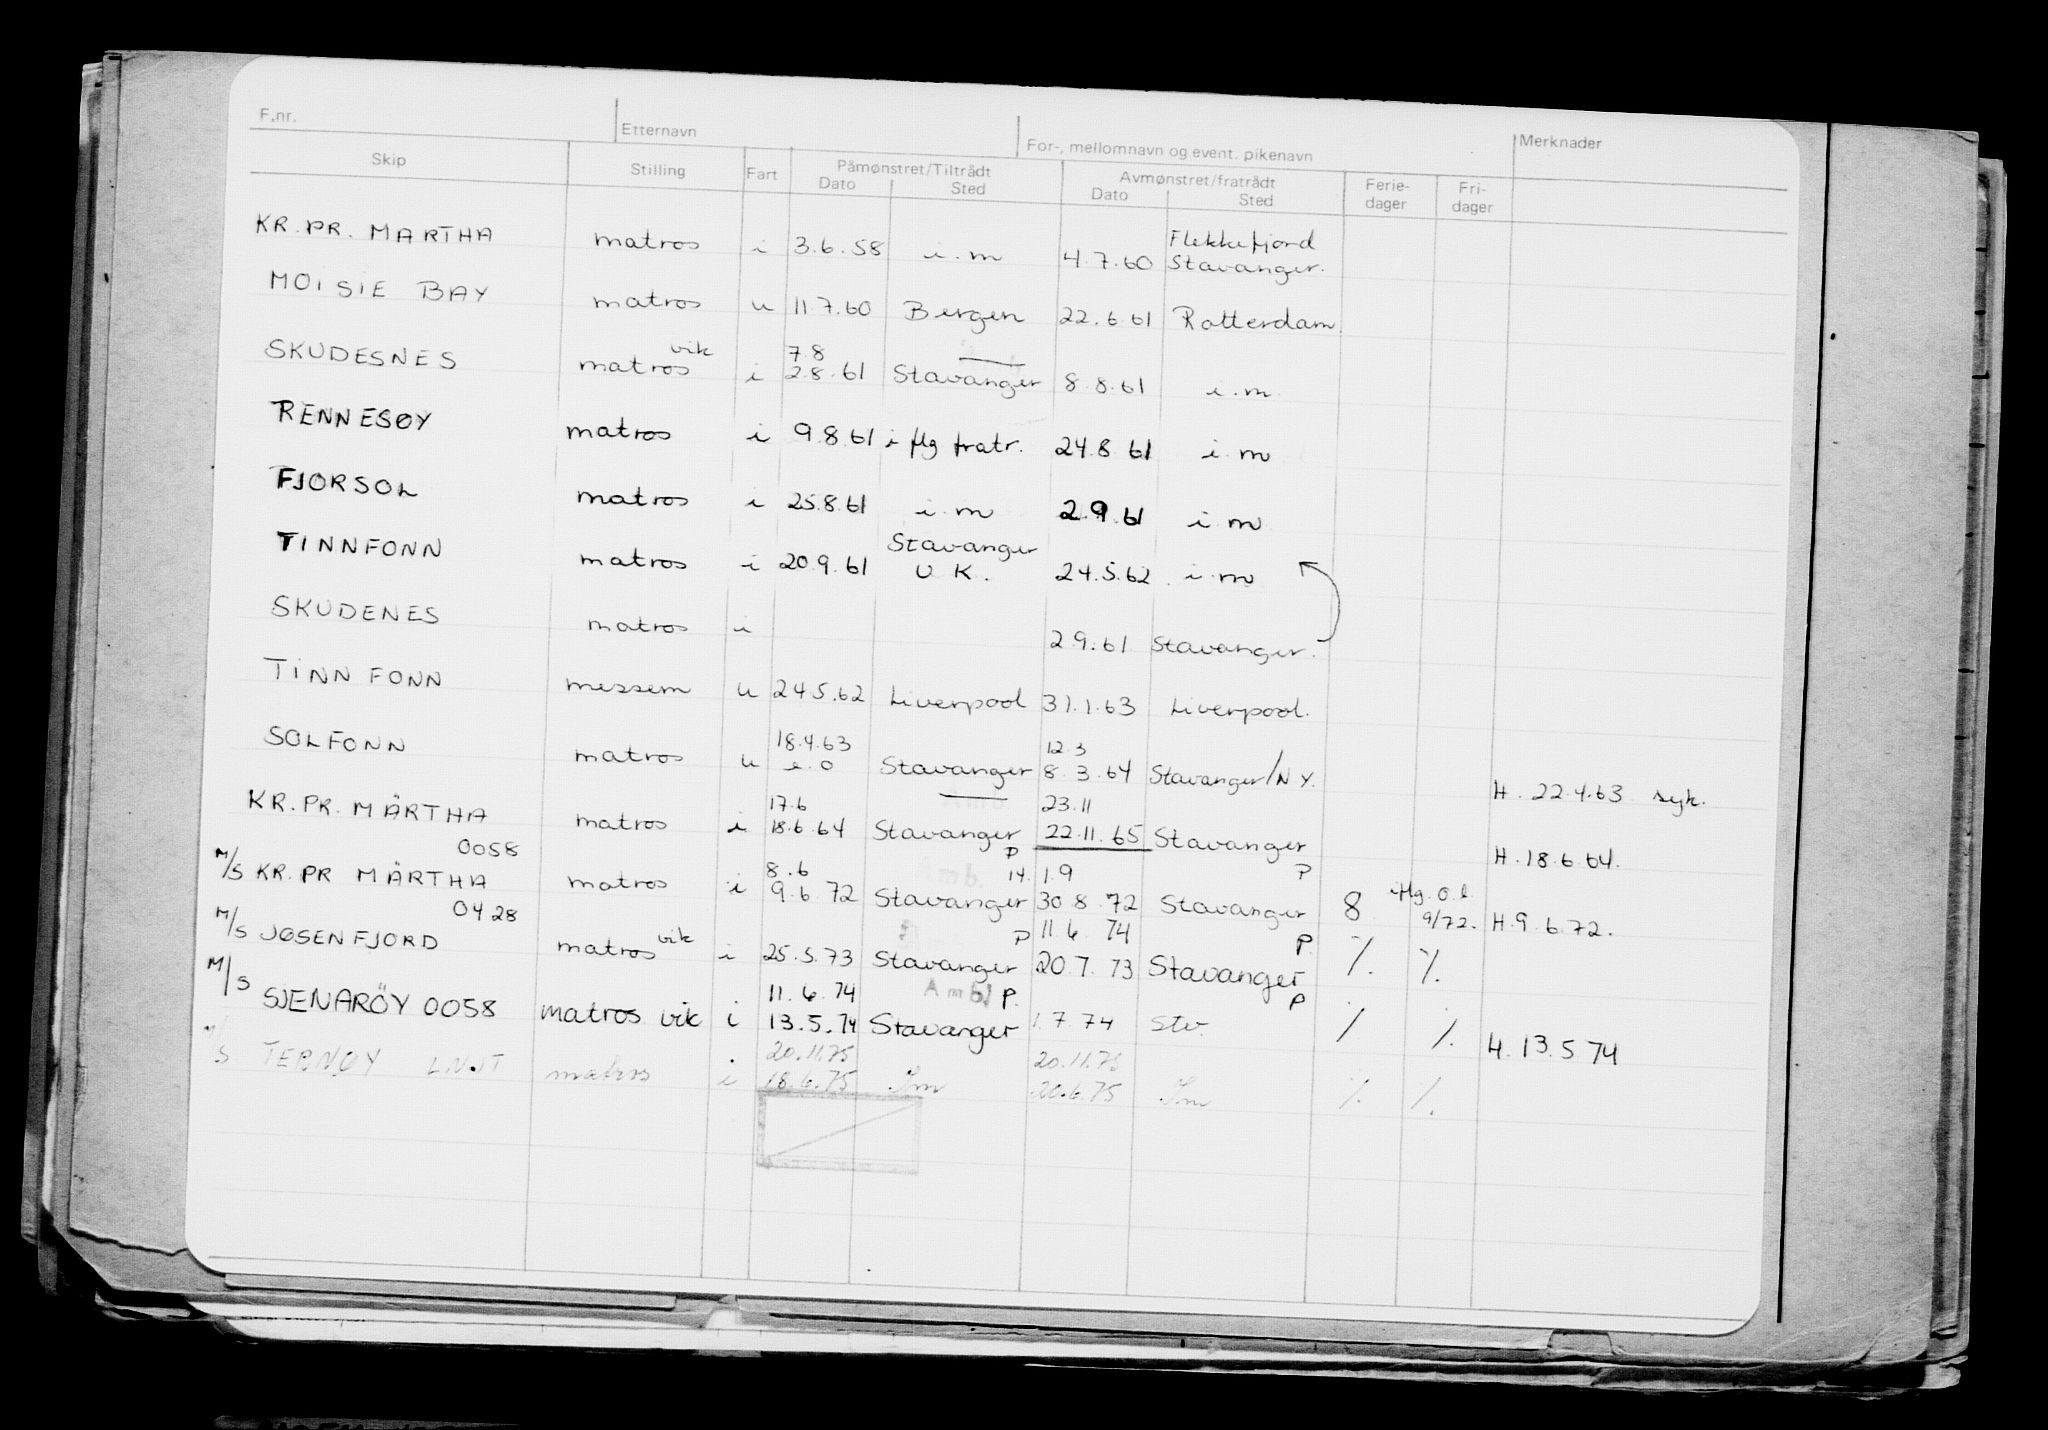 F.nr. Etternavn For-, mellomnavn og event. pikenavn Merknader
Skip Stilling Fart Påmønstret/Tiltrådt Avmønstret/fratrådt Ferie- Fri-
Dato Sted Dato Sted dager dager
Flekkefjord
KR. PR. MARTHA matros i 3.6.58 i.m 4.7.60 Stavanger.
MOISIE BAY matros u 11.7.60 Bergen 22.6.61 Rotterdam
vik 7.8
SKUDESNES matros i 2.8.61 Stavanger 8.8.61 i.m.
RENNESØY matros i 9.8.61 i flg fratr. 24.8.61 i.m
FJORSOL matros i 25.8.61 i.m 2.9.61 i.m
Stavanger
TINNFONN matros i 20.9.61 U.K. 24.5.62. i.m
SKUDENES matros i 2.9.61 Stavanger.
TINN FONN messem u 24.5.62 Liverpool 31.1.63 Liverpool.
18.4.63 12.3
SOLFONN matros u e.o Stavanger 8.3.64 Stavanger/N.Y. H. 22.4.63 syk.
17.6 23.11
KR. PR. MÄRTHA matros i 18.6.64 Stavanger 22.11.65 Stavanger H. 18.6.64.
0058 8.6 P 14. 1.9 P
M/S KR. PR MÄRTHA matros i 9.6.72 Stavanger 30.8.72 Stavanger 8 iflg. O.l. 9/72. H.9.6.72.
0428 vik P 11.6.74 P.
M/S JØSENFJORD matros i 25.5.73 Stavanger 20.7.73 Stavanger /. /.
11.6.74 Amb P. P
M/S SJENARÖY 0058 matros vik i 13.5.74 Stavanger 1.7.74 Stv. / /. H. 13.5 74
20.11.75 20.11.75
M/S TERNØY matros i 18.6.75 Im 20.6.75 Im /. /.